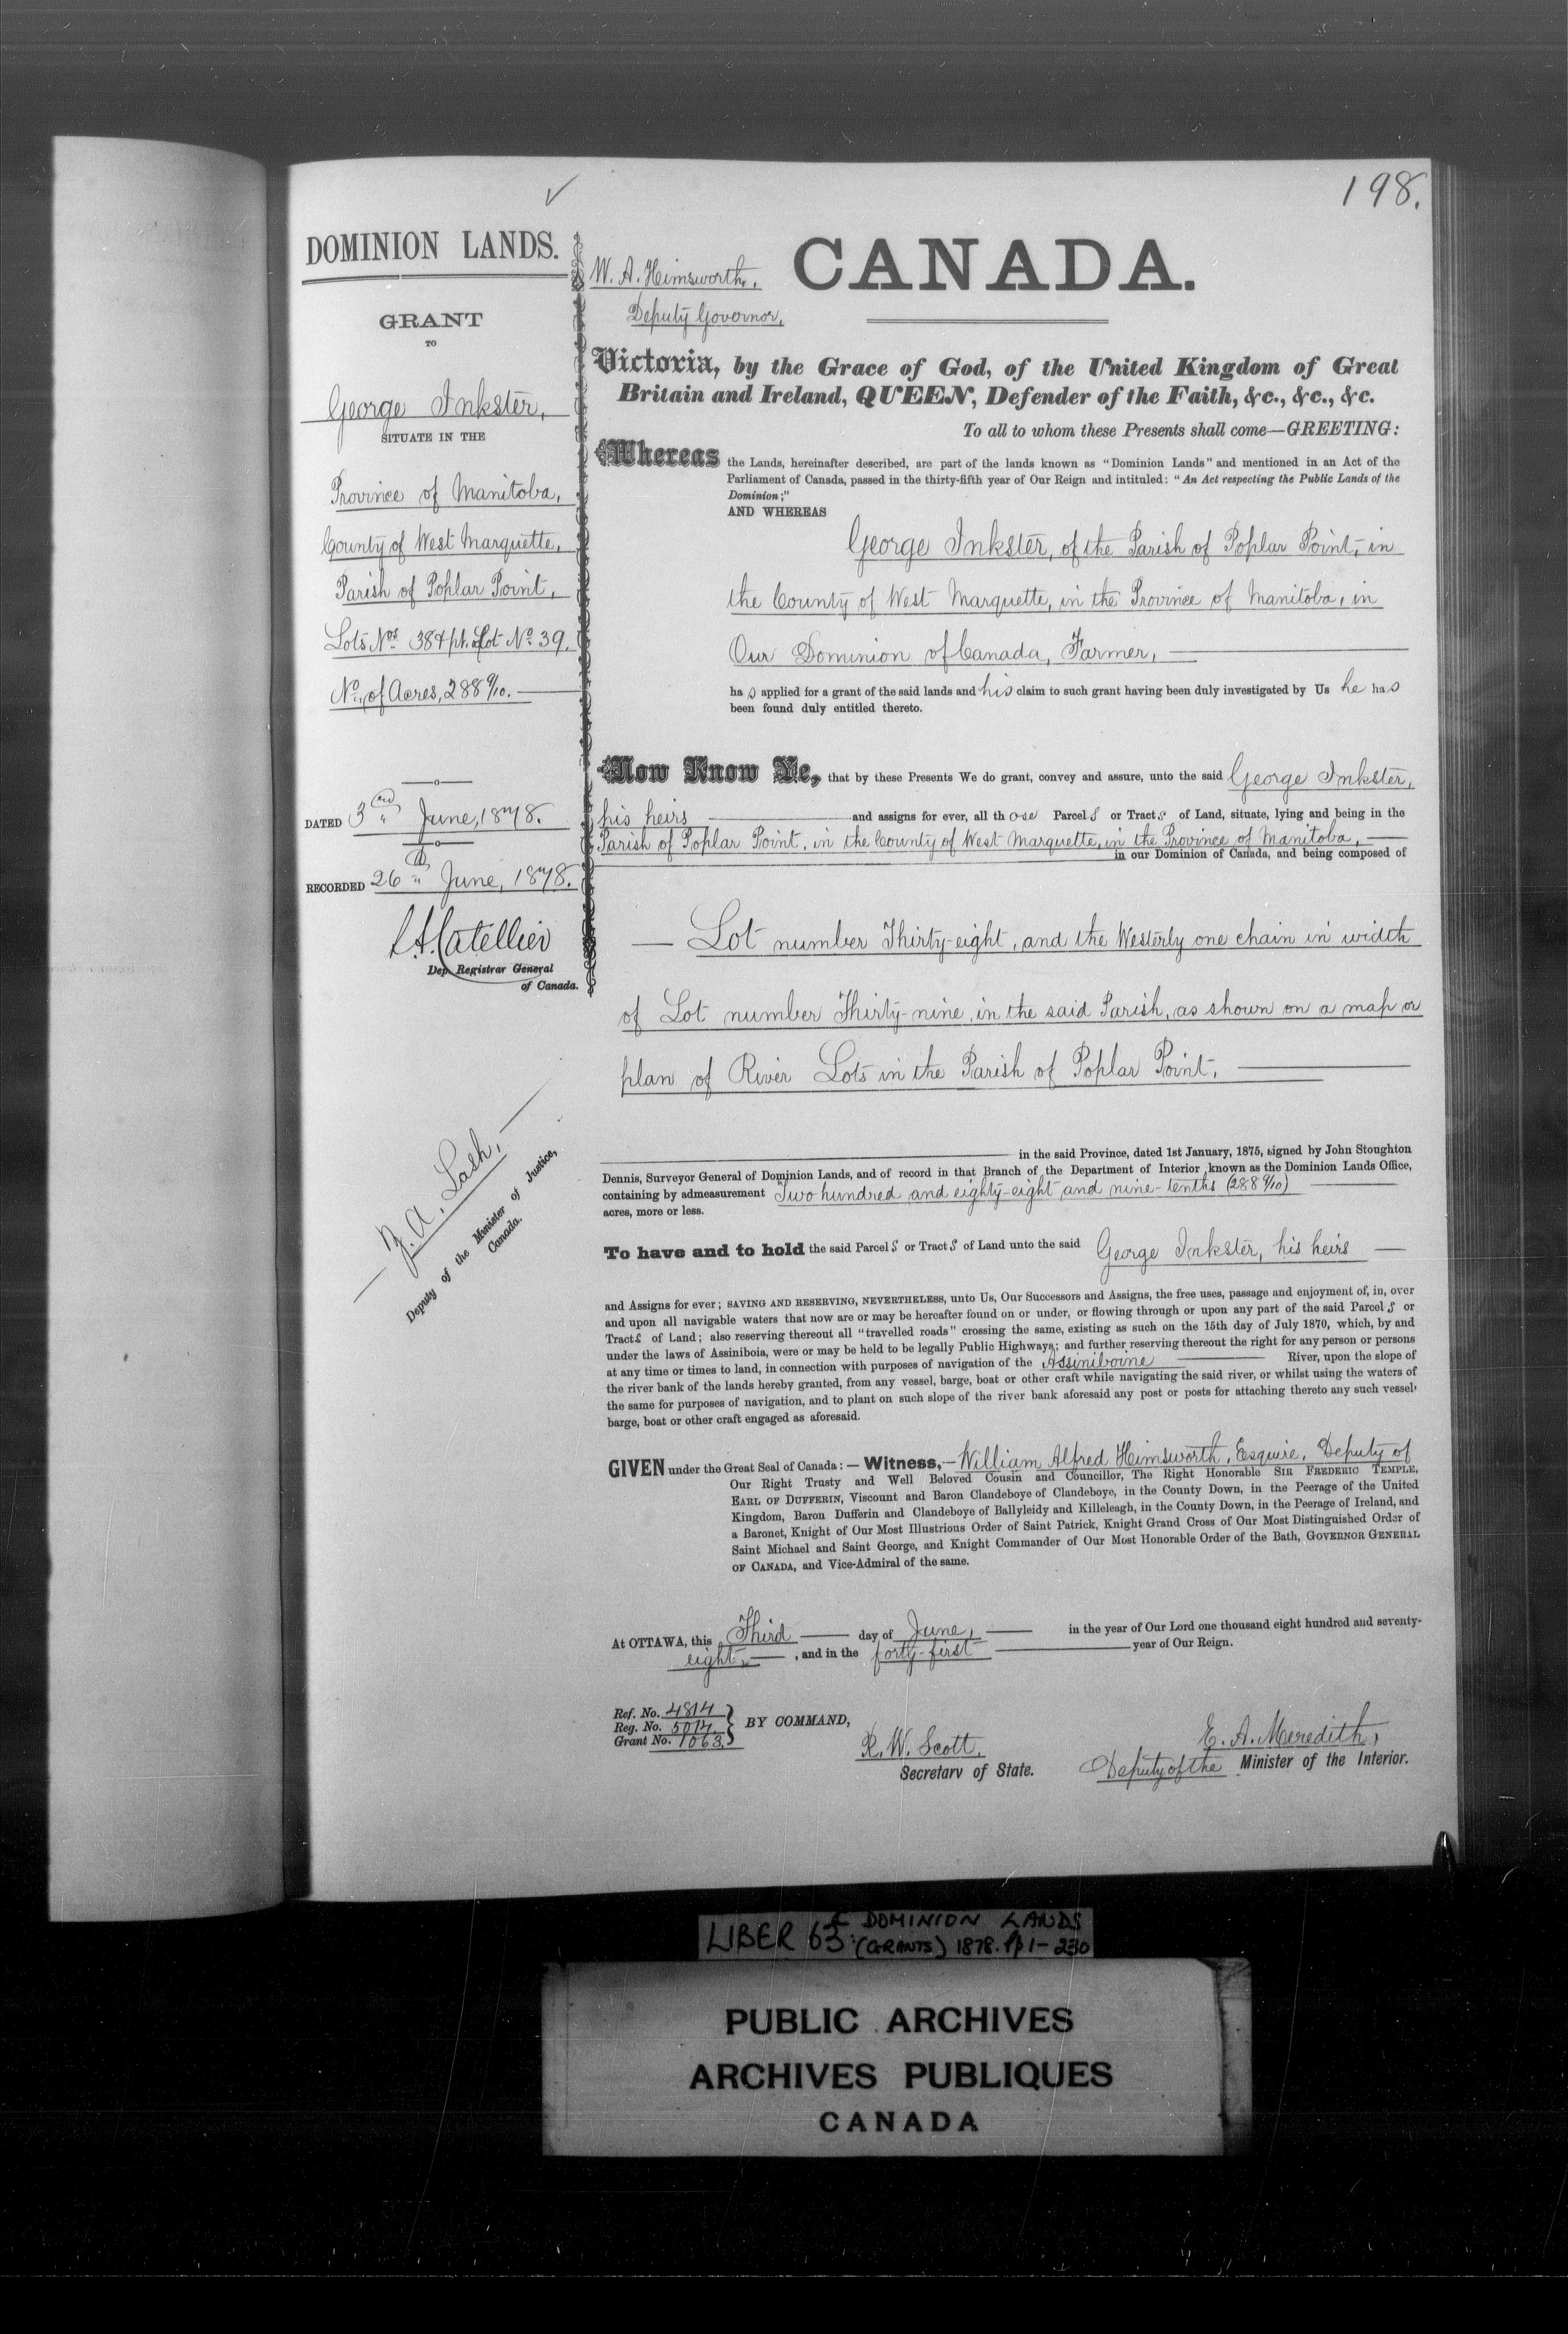 198.
DOMINION LANDS.
GRANT
TO
George Inkster,
SITUATE IN THE
Province of Manitoba,
County of West Marquette,
Parish of Poplar Point,
Lots Nos 38 & pt. of Lot No 39.
No. of Acres, 288 9/10.
DATED 3rd June, 1878.
RECORDED 26th June, 1878.
L.A. Catellier
Dep. Registrar General
of Canada.
Z. A. Lash,
Deputy of the Minister of Justice,
Canada.
W. A. Himsworth,
Deputy Governor,
CANADA.
Victoria, by the Grace of God, of the United Kingdom of Great
Britain and Ireland, QUEEN, Defender of the Faith, &c., &c., &c.
To all to whom these Presents shall come—GREETING:
Whereas the Lands, hereinafter described, are part of the lands known as "Dominion Lands" and mentioned in an Act of the
Parliament of Canada, passed in the thirty-fifth year of Our Reign and intituled: "An Act respecting the Public Lands of the
Dominion;"
AND WHEREAS
George Inkster, of the Parish of Poplar Point, in
the County of West Marquette, in the Province of Manitoba, in
Our Dominion of Canada, Farmer,
has applied for a grant of the said lands and his claim to such grant having been duly investigated by Us he has
been found duly entitled thereto.
Now Know Ye, that by these Presents We do grant, convey and assure, unto the said George Inkster,
his heirs and assigns for ever, all those Parcels or Tracts of Land, situate, lying and being in the
Parish of Poplar Point, in the County of West Marquette, in the Province of Manitoba,
in our Dominion of Canada, and being composed of
Lot number Thirty-eight, and the Westerly one chain in width
of Lot number Thirty-nine, in the said Parish, as shown on a map or
plan of River Lots in the Parish of Poplar Point,
in the said Province, dated 1st January, 1875, signed by John Stoughton
Dennis, Surveyor General of Dominion Lands, and of record in that Branch of the Department of Interior known as the Dominion Lands Office,
containing by admeasurement Two hundred and eighty-eight and nine-tenths (288 9/10)
acres, more or less.
To have and to hold the said Parcels or Tracts of Land unto the said George Inkster, his heirs
and Assigns for ever; SAVING AND RESERVING, NEVERTHELESS, unto Us, Our Successors and Assigns, the free uses, passage and enjoyment of, in, over
and upon all navigable waters that now are or may be hereafter found on or under, or flowing through or upon any part of the said Parcels or
Tracts of Land; also reserving thereout all "travelled roads" crossing the same, existing as such on the 15th day of July 1870, which, by and
under the laws of Assiniboia, were or may be held to be legally Public Highways; and further reserving thereout the right for any person or persons
at any time or times to land, in connection with purposes of navigation of the Assiniboine River, upon the slope of
the river bank of the lands hereby granted, from any vessel, barge, boat or other craft while navigating the said river, or whilst using the waters of
the same for purposes of navigation, and to plant on such slope of the river bank aforesaid any post or posts for attaching thereto any such vessel,
barge, boat or other craft engaged as aforesaid.
GIVEN under the Great Seal of Canada:— Witness,— William Alfred Himsworth, Esquire, Deputy of
Our Right Trusty and Well Beloved Cousin and Councillor, The Right Honorable SIR FREDERIC TEMPLE,
EARL OF DUFFERIN, Viscount and Baron Clandeboye of Clandeboye, in the County Down, in the Peerage of the United
Kingdom, Baron Dufferin and Clandeboye of Ballyleidy and Killeleagh, in the County Down, in the Peerage of Ireland, and
a Baronet, Knight of Our Most Illustrious Order of Saint Patrick, Knight Grand Cross of Our Most Distinguished Order of
Saint Michael and Saint George, and Knight Commander of Our Most Honorable Order of the Bath, GOVERNOR GENERAL
OF CANADA, and Vice-Admiral of the same.
At OTTAWA, this Third day of June, in the year of Our Lord one thousand eight hundred and seventy-
eight, and in the forty-first year of Our Reign.
Ref. No. 4814
Reg. No. 5017
Grant No. 1063.
BY COMMAND,
R. W. Scott,
Secretary of State.
E. A. Meredith,
Deputy of the Minister of the Interior.
LIBER 63: DOMINION LANDS
(GRANTS) 1878. pp 1-230
PUBLIC ARCHIVES
ARCHIVES PUBLIQUES
CANADA